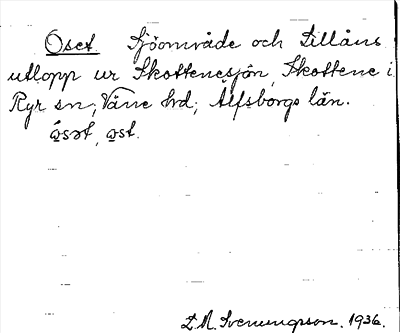 Oset Sjöområde och Lillåns
utlopp ur Skottenesjön, Skottene i
Ryr sn; Väne hd; Älfsborgs län.
ǫ́sət, ǫst.
L. M. Svenungsson. 1936.